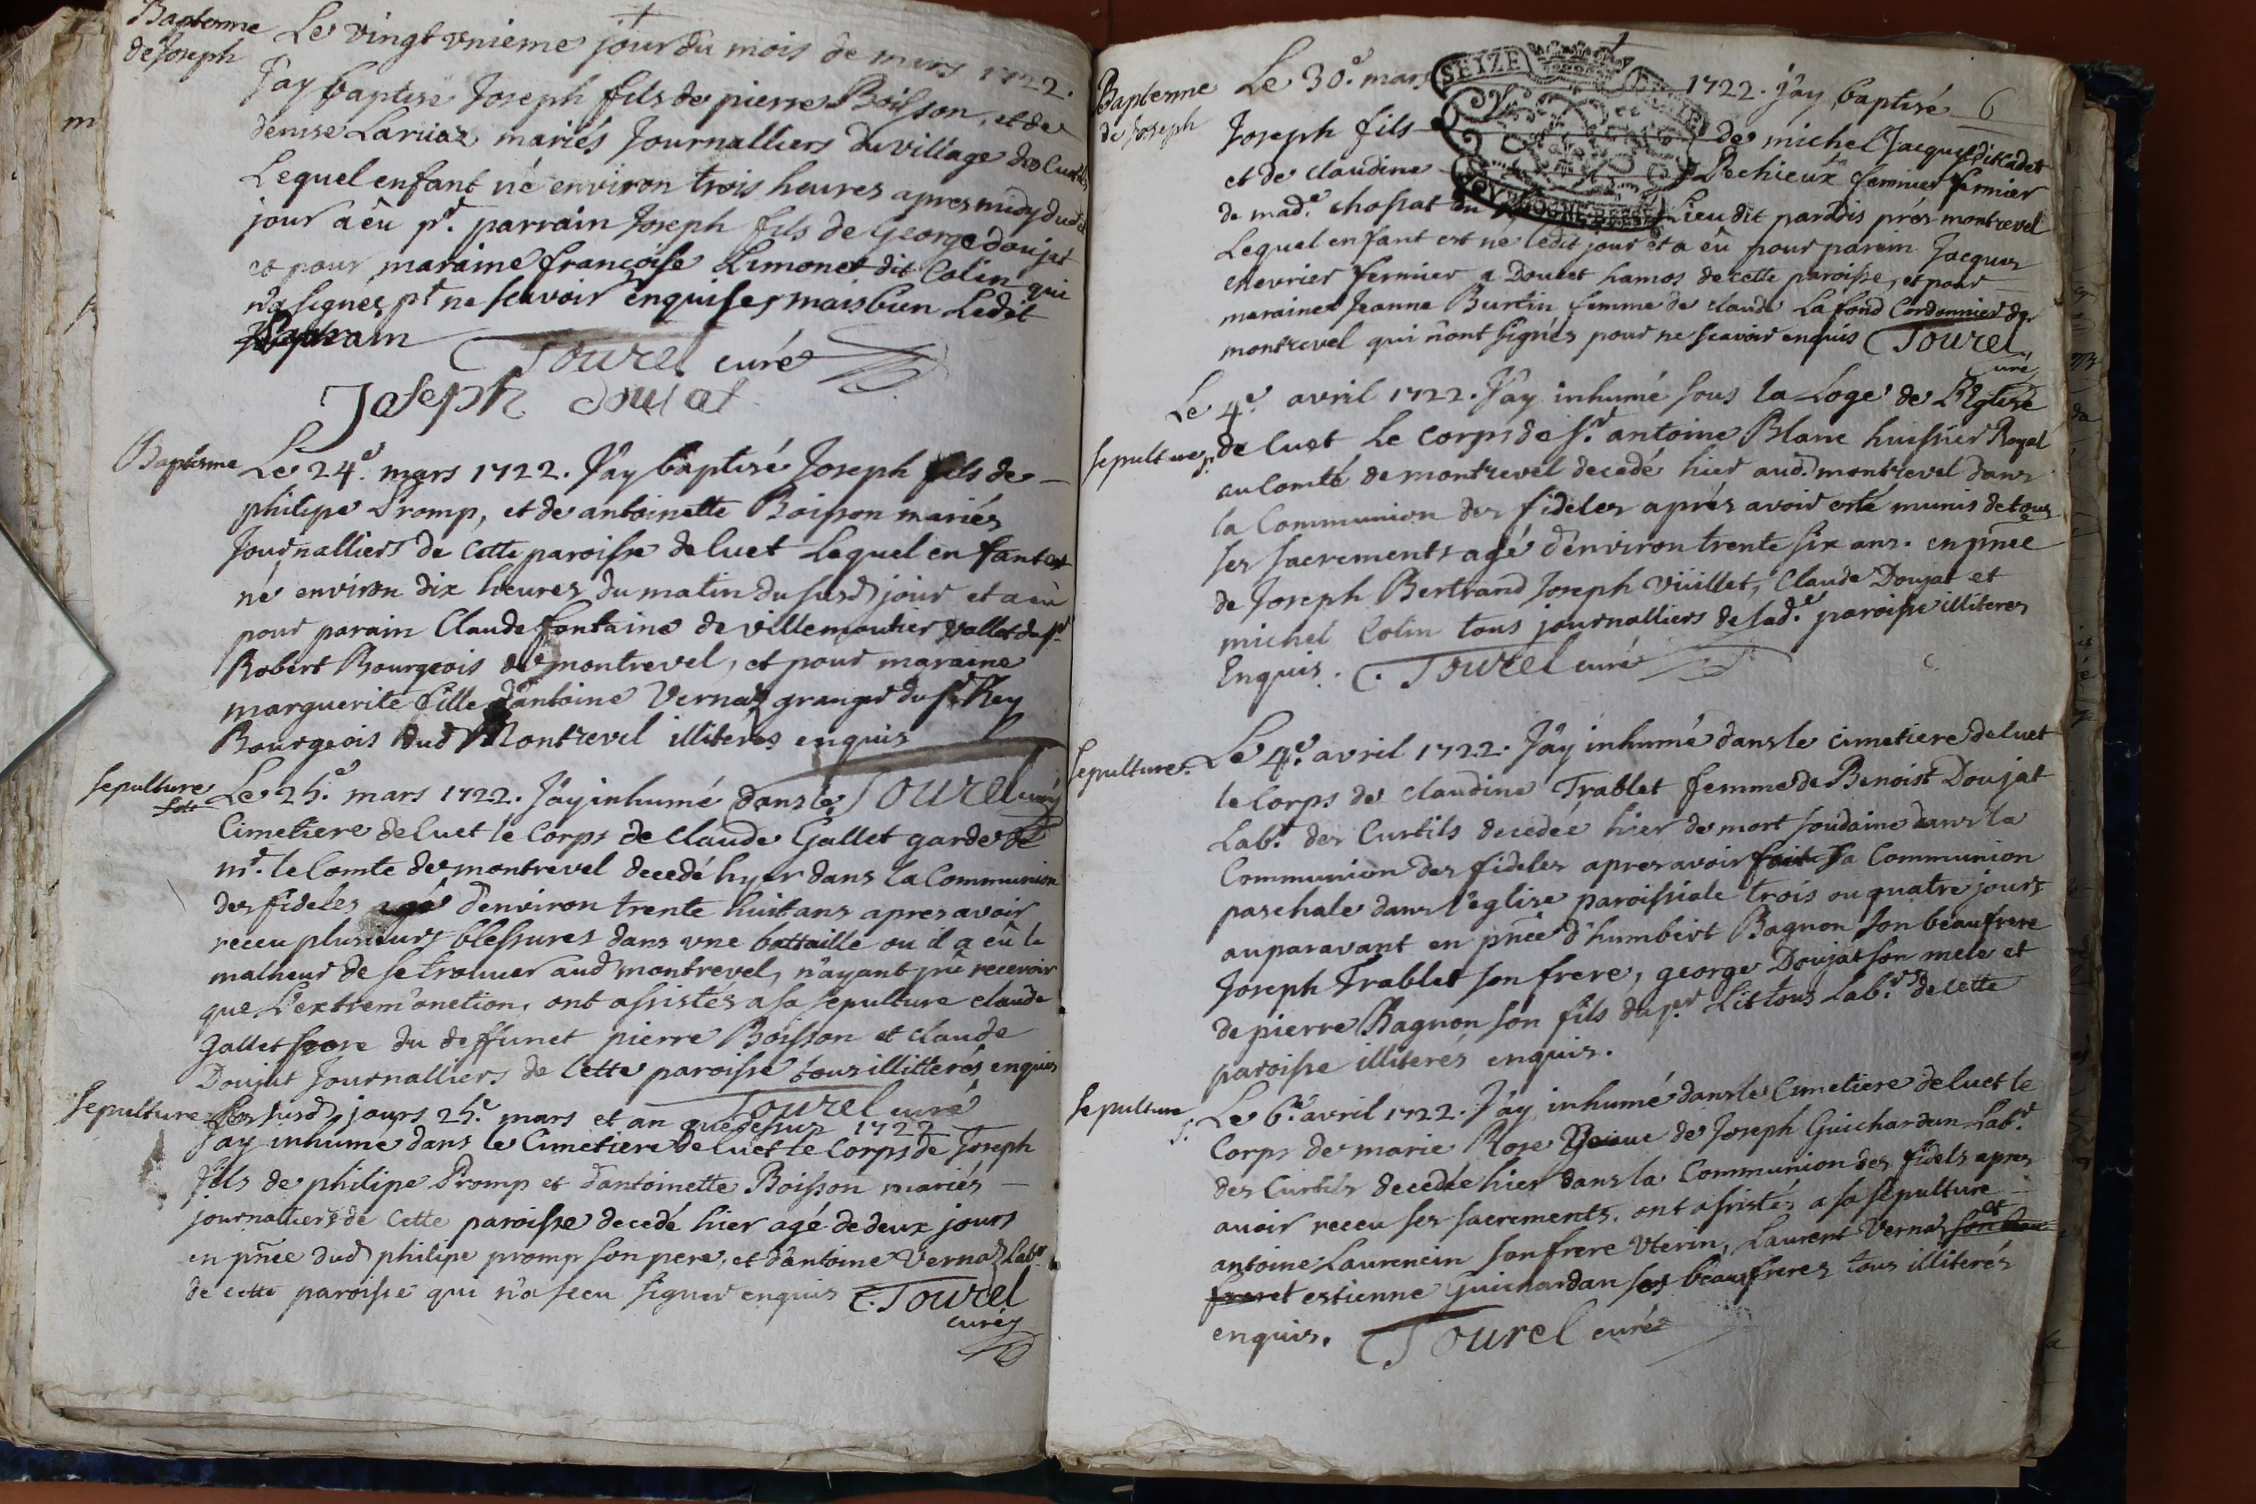 Baptesme
de Joseph
Le vingt vnieme jour du mois de mars 1722.
J'ay baptisé Joseph fils de pierre Boisson, et de
denise Laruaz mariés Journalliers du village des Curtils
Lequel enfant né environ trois heures apres midy dudt
jour a êu pr. parrain Joseph fils de George doujat
et pour maraine françoise Limonet dit Colin qui
n'a signée pt ne scavoir enquise, mais bien Ledit
parrain
Tourel curé
Joseph doujat
Baptesme
Le 24e. mars 1722. J'ay baptisé Joseph fils de
philipe Promp, et de antoinette Boisson mariés
Journalliers de cette paroisse de luet Lequel enfant est
né environ dix heures du matin du susd jour et a eu
pour parain Claude fontaine de villemoutier vallet du sr
Robert Bourgeois de montrevel, et pour maraine
marguerite fille d'antoine Vernaz granger du sr Rey
Bourgeois dud Montrevel illiterés enquis
Tourel curé
sepulture
Le 25e. mars 1722. J'ay inhumé dans le
Cimetiere de luet le Corps de Claude Gallet garde de
mr. le Comte de montrevel decedé hyer dans la Communion
des fideles agé d'environ trente huit ans apres avoir
receu plusieurs blessures dans vne battaille ou il a eû le
malheur de se trouver aud montrevel, n'ayant pû recevoir
que L'extrem'onction, ont assistés a sa sepulture claude
Gallet frere du deffunct pierre Boisson et claude
Doujat Journalliers de cette paroisse tous illitterés enquis
Tourel curé
sepulture
Les susd jours 25e. mars et an que dessus 1722
J'ay inhumé dans le Cimetiere de luet le Corps de Joseph
fils de philipe Promp et d'antoinette Boisson mariés
journalliers de cette paroisse decedé hier agé de deux jours
en pñce dud philipe promp son pere, et d'antoine Vernaz Labr
de cette paroisse qui n'a sceu signer enquis C. Tourel
curé
6
Baptesme
de Joseph
Le 30e. mars 1722. J'ay baptisé
SEIZE
Joseph fils de michel Jacquet dit Cadet
et de claudine Pechieux fermier
de made. chossat du Lieu dit paradis prés montrevel
Lequel enfant est né ledit jour et a êu pour parain Jacques
chevrier fermier a Doucet hamos de cette paroisse, et pour
maraine Jeanne Burtin femme de claude La fond Cordonnier de
montrevel qui n'ont signés pour ne scavoir enquis Tourel
curé
sepulture
Le 4e. avril 1722. J'ay inhumé sous la Loge de L'Eglise
de luet Le Corps de sr. antoine Blanc huissier Royal
au Comté de montrevel decedé hier aud montrevel dans
la Communion des fideles aprés avoir esté munis de tous
ses sacrements agé d'environ trente six ans. en pñce
de Joseph Bertrand Joseph Vüillet, Claude Doujat et
michel Colin tous journalliers de lade. paroisse illiteres
Enquis. C. Tourel curé
sepulture
Le 4e. avril 1722. J'ay inhumé dans le cimetiere de luet
le Corps de claudine Trablet femme de Benoist Doujat
Labr. des Curtils decedée hier de mort soudaine dans la
Communion des fideles apres avoir fait sa Communion
paschale dans l'eglise paroissiale trois ou quatre jours
auparavant en pñce d'humbert Bagnon son beaufrere
Joseph Trablet son frere, george Doujat son et
de pierre Bagnon son fils du pr. Lit tous Labrs de cette
paroisse illiterés enquis.
sepulture
Le 6e. avril 1722. J'ay inhumé dans le Cimetiere de luet le
Corps de marie Rose veuve de Joseph Guichardan Labr.
des Curtils decedée hier dans la Communion des fidels apres
avoir receu ses sacrements. ont assistés a sa sepulture
antoine Laurencin son frere vterin, Laurent Vernaz et son beau
frere et estienne Guichardan ses beaufreres tous illiterés
enquis. C. Tourel curé